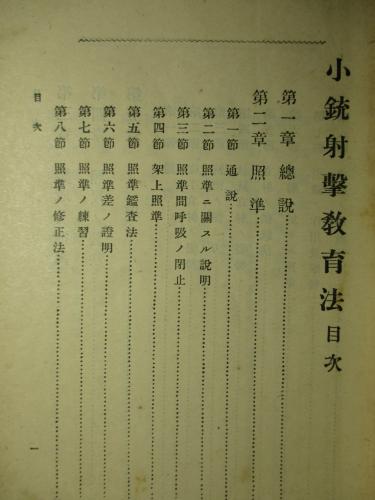 小銃射擊敎育法目次
第一章 總說
第二章 照準
第一節 通說
第二節 照準ニ關スル說明
第三節 照準間呼吸ノ閉止
第四節 架上照準
第五節 照準鑑査法
第六節 照準差ノ證明
第七節 照準ノ練習
第八節 照準ノ修正法
目次
一